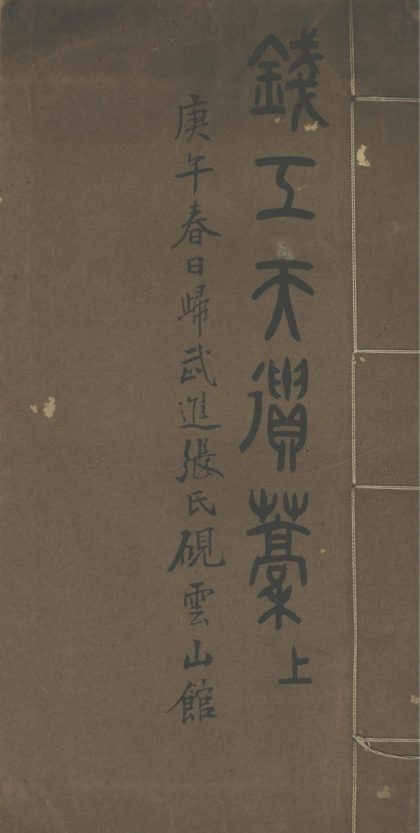 錢工天藁上
庚午春日歸武進張氏硯雲山館